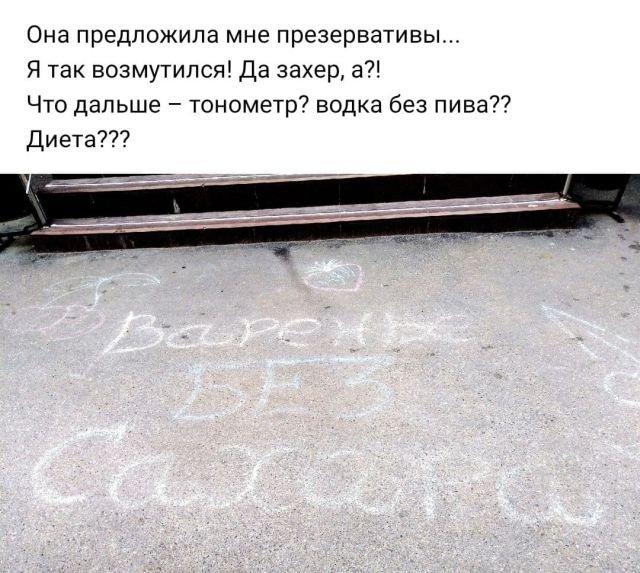 Она предложила мне презервативы...
Я так возмутился! Да захер, а?!
Что дальше – тонометр? водка без пива??
Диета???
Варенье
БЕЗ
Сахара